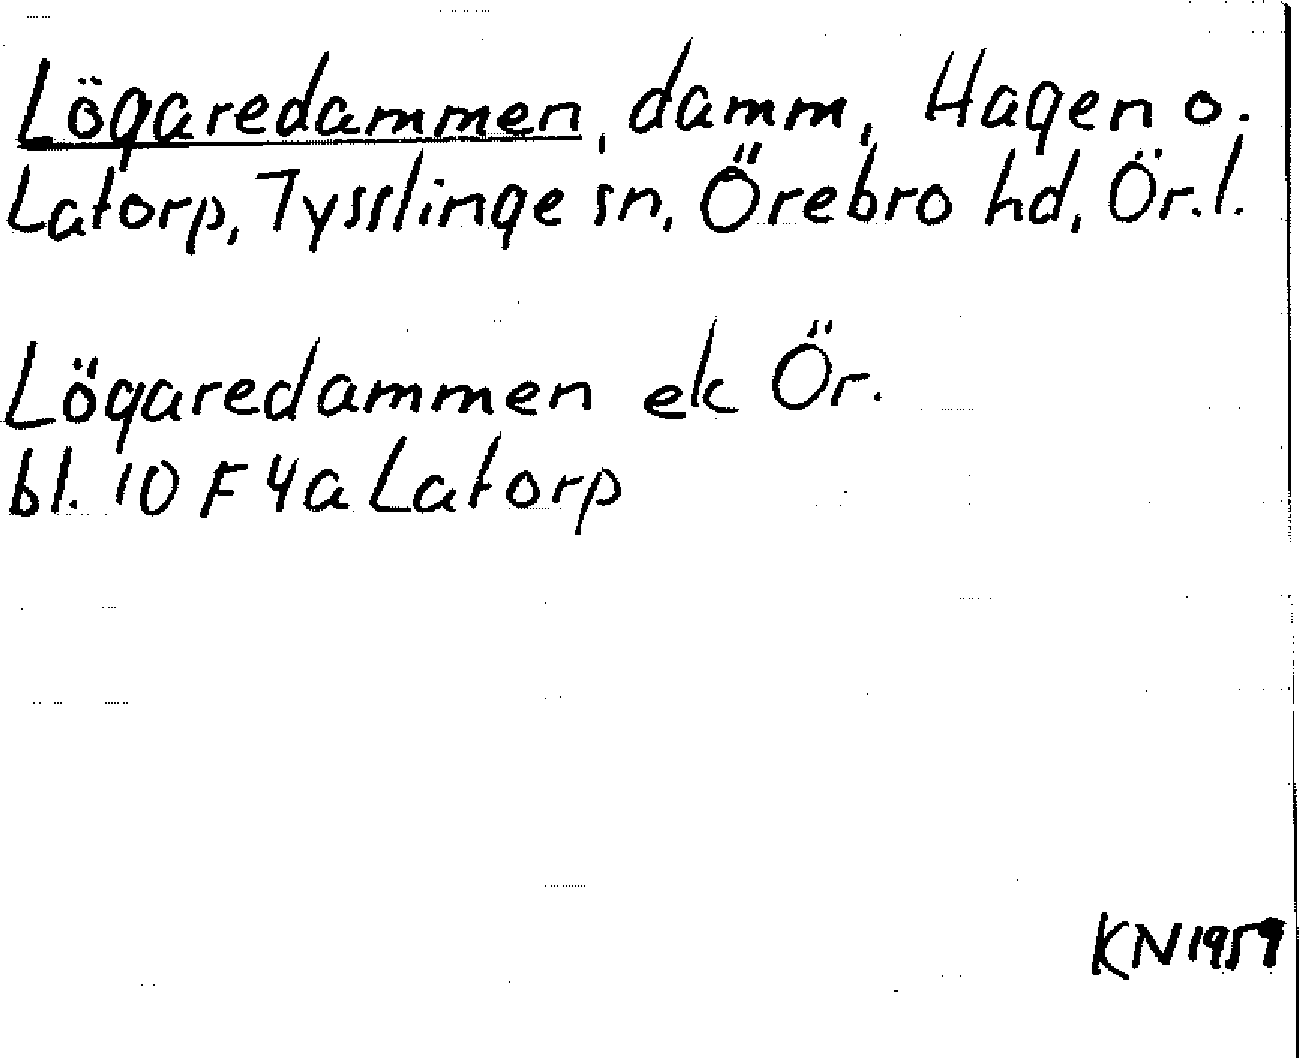 Lögaredammen, damm, Hagen o.
Latorp, Tysslinge sn, Örebro hd, Ör.l.
Lögaredammen ek Ör.
bl. 10 F 4a Latorp
KN 1959